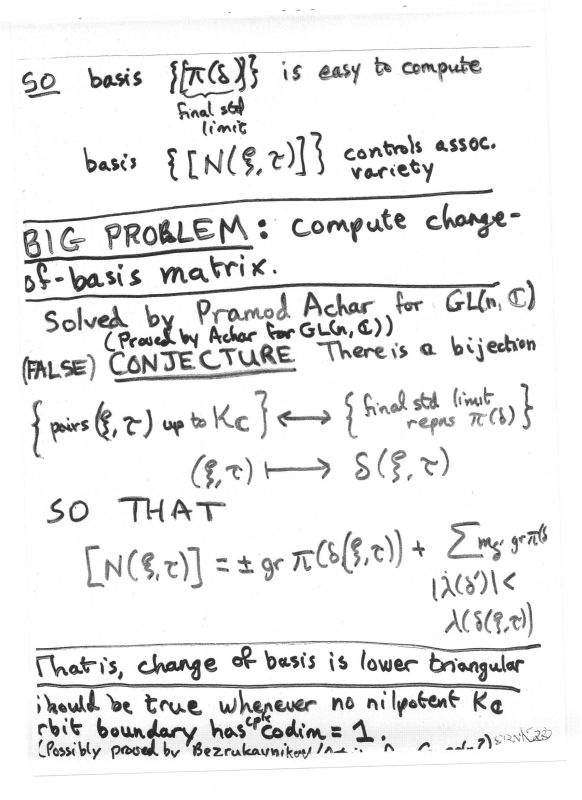 SO basis {[π(δ)]} is easy to compute
final std
limit
basis {[N(ξ,τ)]} controls assoc.
variety
BIG PROBLEM: compute change-
of-basis matrix.
Solved by Pramod Achar for GL(n,ℂ)
(Proved by Achar for GL(n,ℂ))
(FALSE) CONJECTURE There is a bijection
{pairs (ξ,τ) up to Kℂ} ⟷ {final std limit
repns π(δ)}
(ξ,τ) ⟼ δ(ξ,τ)
SO THAT
[N(ξ,τ)] = ± gr π(δ(ξ,τ)) + ∑ mδ' gr π(δ
|λ(δ')| <
λ(δ(ξ,τ))
That is, change of basis is lower triangular
should be true whenever no nilpotent Kℂ
rbit boundary has cplx codim = 1.
(Possibly proved by Bezrukavnikov/